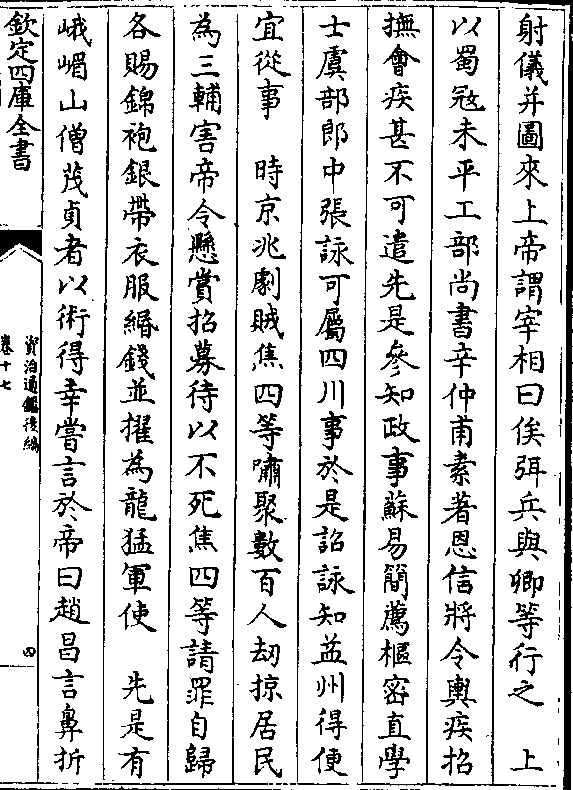 射儀并圖來上帝謂宰相曰俟弭兵與卿等行之　上
以蜀宼未平工部尚書辛仲甫素著恩信將令輿疾招
撫會疾甚不可遣先是參知政事蘇易簡薦樞密直學
士虞部郎中張詠可屬四川事於是詔詠知益州得便
宜從事　時京兆劇賊焦四等嘯聚數百人刼掠居民
為三輔害帝令懸賞招募待以不死焦四等請罪自歸
各賜錦袍銀帶衣服緡錢並擢為龍猛軍使　先是有
峨嵋山僧茂貞者以術得幸嘗言於帝曰趙昌言鼻折
欽定四庫全書
資治通鑑後編
卷十七
四